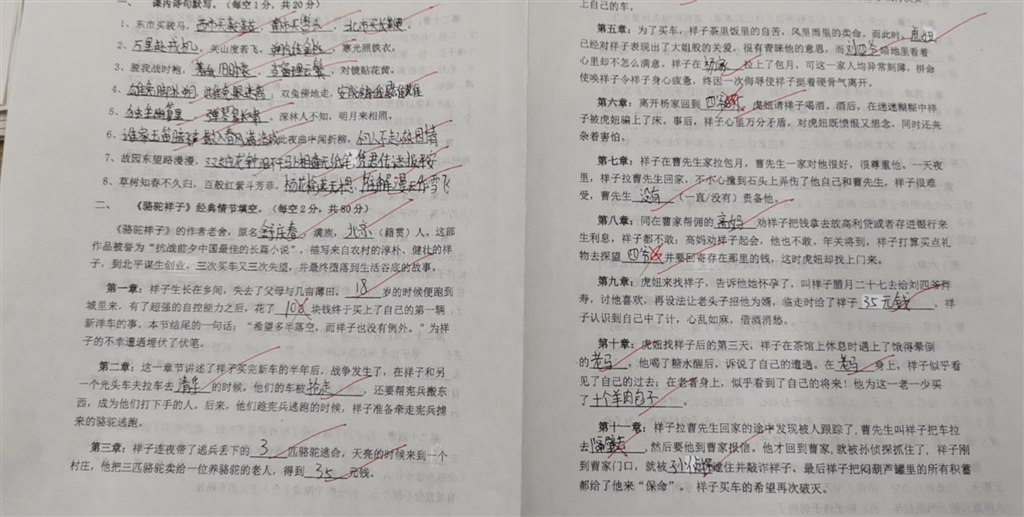 一、 课内诗句默写。（每空1分，共20分）
1、东市买骏马，西市买鞍鞯，南市买辔头，北市买长鞭。
2、万里赴戎机，关山度若飞。朔气传金柝，寒光照铁衣。
3、脱我战时袍，著我旧时裳，当窗理云鬓，对镜贴花黄。
4、双兔傍地走，安能辨我是雄雌
5、独坐幽篁里，弹琴复长啸。深林人不知，明月来相照。
6、谁家玉笛暗飞声，散入春风满洛城。此夜曲中闻折柳，何人不起故园情
7、故园东望路漫漫，双袖龙钟泪不干。马上相逢无纸笔，凭君传语报平安
8、草树知春不久归，百般红紫斗芳菲。杨花榆荚无才思，惟解漫天作雪飞
二、 《骆驼祥子》经典情节填空。（每空2分，共80分）
《骆驼祥子》的作者老舍，原名舒庆春，满族，北京（籍贯）人。这部
作品被誉为“抗战前夕中国最佳的长篇小说”，描写来自农村的淳朴、健壮的祥
子，到北平谋生创业，三次买车又三次失望，并最终堕落到生活谷底的故事。
第一章：祥子生长在乡间，失去了父母与几亩薄田，18岁的时候便跑到
城里来，有了超强的自控能力之后，花了10块钱终于买上了自己的第一辆
新洋车的事。本节结尾的一句话：“希望多半落空，而祥子也没有例外。”为祥
子的不幸遭遇埋伏了伏笔。
第二章：这一章节讲述了祥子买完新车的半年后，战争发生了，在祥子和另
一个光头车夫拉车去清华的时候，他们的车被抢走，还要帮宪兵搬东
西，成为他们打下手的人，后来，他们趁宪兵逃跑的时候，祥子准备牵走宪兵掳
来的骆驼逃跑。
第三章：祥子连夜带了逃兵丢下的3匹骆驼逃命，天亮的时候来到一个
村庄，他把三匹骆驼卖给一位养骆驼的老人，得到35元钱。
上自己的车。
第五章：为了买车，祥子茶里饭里的自苦，风里雨里的卖命。而此时，虎妞
已经对祥子表现出了大姐般的关爱，很有青睐他的意思，而刘四爷隔地里看着
心里却不怎么满意。祥子在杨家拉上了包月，可这一家人均异常刻薄，拼命
使唤祥子令祥子身心疲惫，终因一次侮辱使祥子挺着硬骨气离开。
第六章：离开杨家回到四爷，虎妞请祥子喝酒。酒后，在迷迷糊糊中祥
子被虎妞骗上了床。事后，祥子心里万分矛盾，对虎妞既愤恨又想念，同时还夹
杂着害怕。
第七章：祥子在曹先生家拉包月，曹先生一家对他很好，很尊重他。一天夜
里，祥子拉曹先生回家，不小心撞到石头上弄伤了他自己和曹先生，祥子很难
受，曹先生没有（一直/没有）责备他。
第八章：同在曹家帮佣的高妈劝祥子把钱拿去放高利贷或者存进银行来
生利息，祥子都不敢；高妈劝祥子起会，他也不敢。年关将到，祥子打算买点礼
物去探望四爷并要回寄存在那里的钱，这时虎妞却找上门来。
第九章：虎妞来找祥子，告诉他她怀孕了，叫祥子腊月二十七去给刘四爷拜
寿，讨他喜欢，再设法让老头子招他为婿，临走时给了祥子35元钱，祥
子认识到自己中了计，心乱如麻，借酒消愁。
第十章：虎妞找祥子后的第三天，祥子在茶馆上休息时遇上了饿得晕倒
的老马，他喝了糖水醒后，诉说了自己的遭遇。在老马身上，祥子似乎看
见了自己的过去；在老者身上，似乎看到了自己的将来！他为这一老一少买
了十个羊肉包子。
第十一章：祥子拉曹先生回家的途中发现被人跟踪了，曹先生叫祥子把车拉
去，然后要他到曹家报信。他才回到曹家，就被侦探抓住了，祥子刚
到曹家门口，就被孙侦探逮住并敲诈祥子，最后祥子把闷葫芦罐里的所有积蓄
都给了他来“保命”。祥子买车的希望再次破灭。